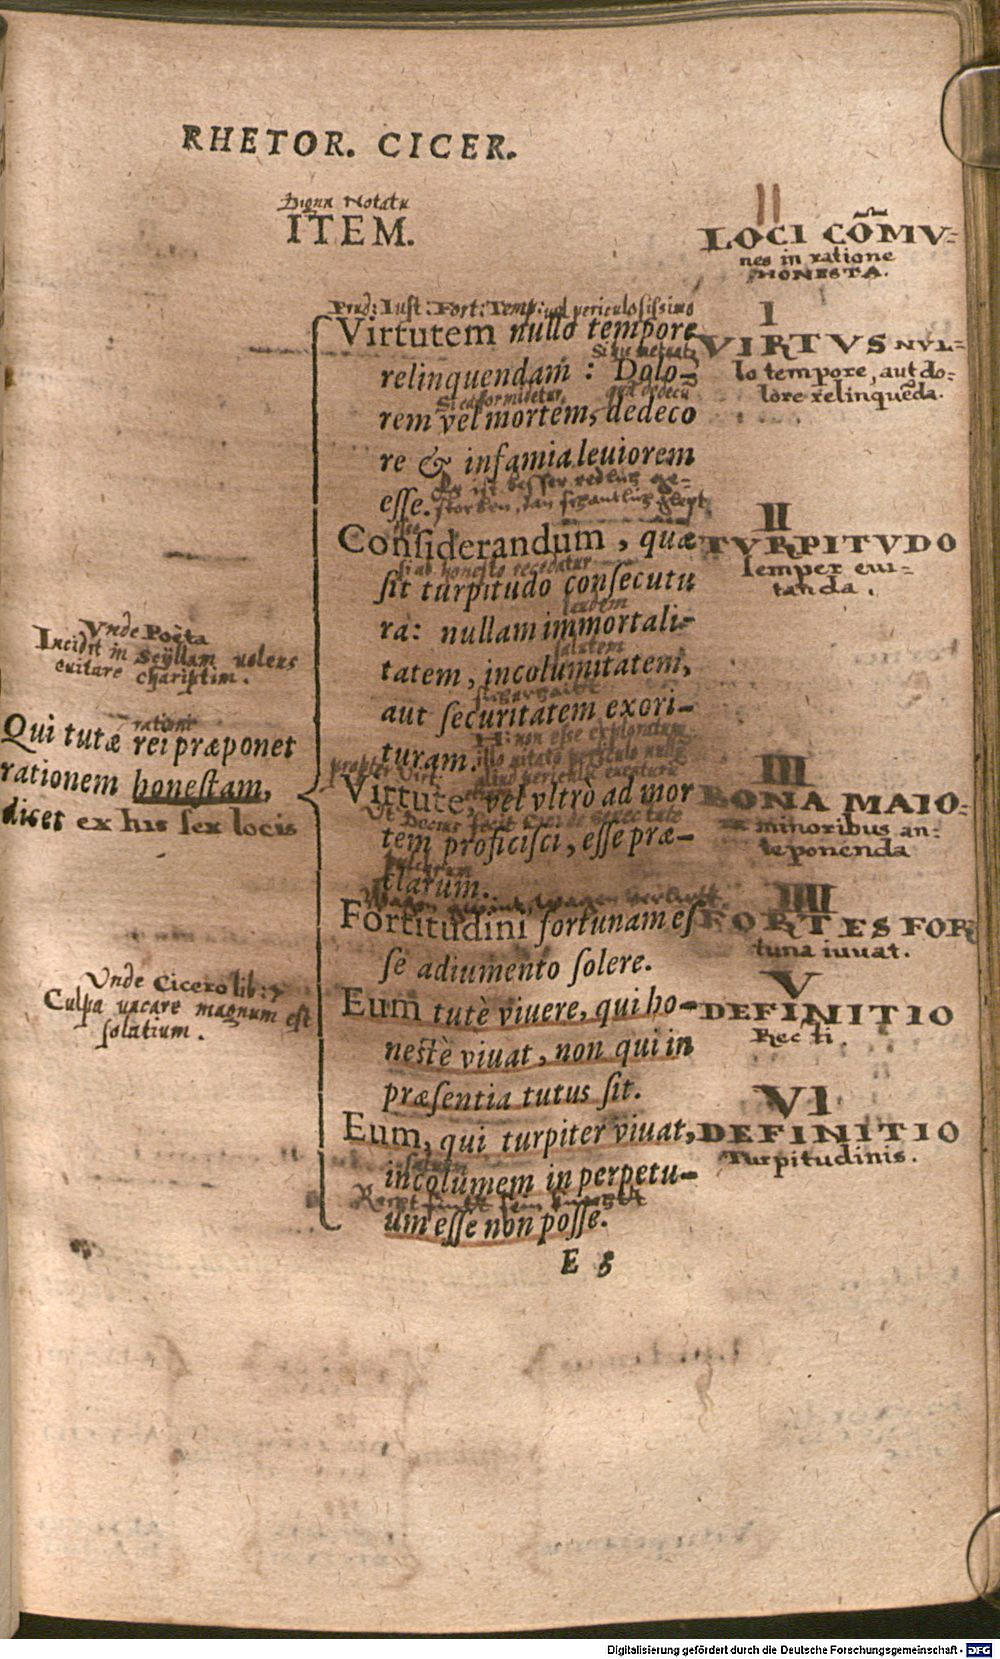 RHETOR. CICER.
Digna Notatu
ITEM.
II
LOCI CÕMV=
nes in ratione
HONESTA.
Prud: Iust: Fort: Temp: vel periculosissimo
Virtutem nullo tempore
relinquendam : Dolo-
rem vel mortem, dedeco
re & infamia leuiorem
esse.
Es ist besser redlich ge=
storben, dan schantlich glept
I
VIRTVS NVL=
lo tempore, aut do=
lore relinquẽda.
Considerandum, quæ
si ab honesto recedatur
sit turpitudo consecutu
laudem
ra: nullam immortali-
salutem
tatem, incolumitatem,
aut securitatem exori-
turam.
II
TVRPITVDO
semper eui=
tanda.
Vnde Poëta
Incidit in Scÿllam uolens
euitare Chariptim.
rationi
Qui tutæ rei præponet
rationem honestam,
dicet ex his sex locis
propter Virt:
Virtute, vel vltrò ad mor
Ut Decius fecit Cic: de senectute
tem proficisci, esse præ-
pulchrum
clarum.
III
BONA MAIO=
minoribus an=
teponenda
Fortitudini fortunam es
se adiumento solere.
IIII
FORTES FOR
tuna iuuat.
Vnde Cicero lib: 7
Culpa vacare magnum est
solatium.
Eum tutè viuere, qui ho-
nestè viuat, non qui in
præsentia tutus sit.
V
DEFINITIO
Recti.
Eum, qui turpiter viuat,
saluum
incolumem in perpetu-
um esse non posse.
VI
DEFINITIO
Turpitudinis.
E 5
Digitalisierung gefördert durch die Deutsche Forschungsgemeinschaft - DFG